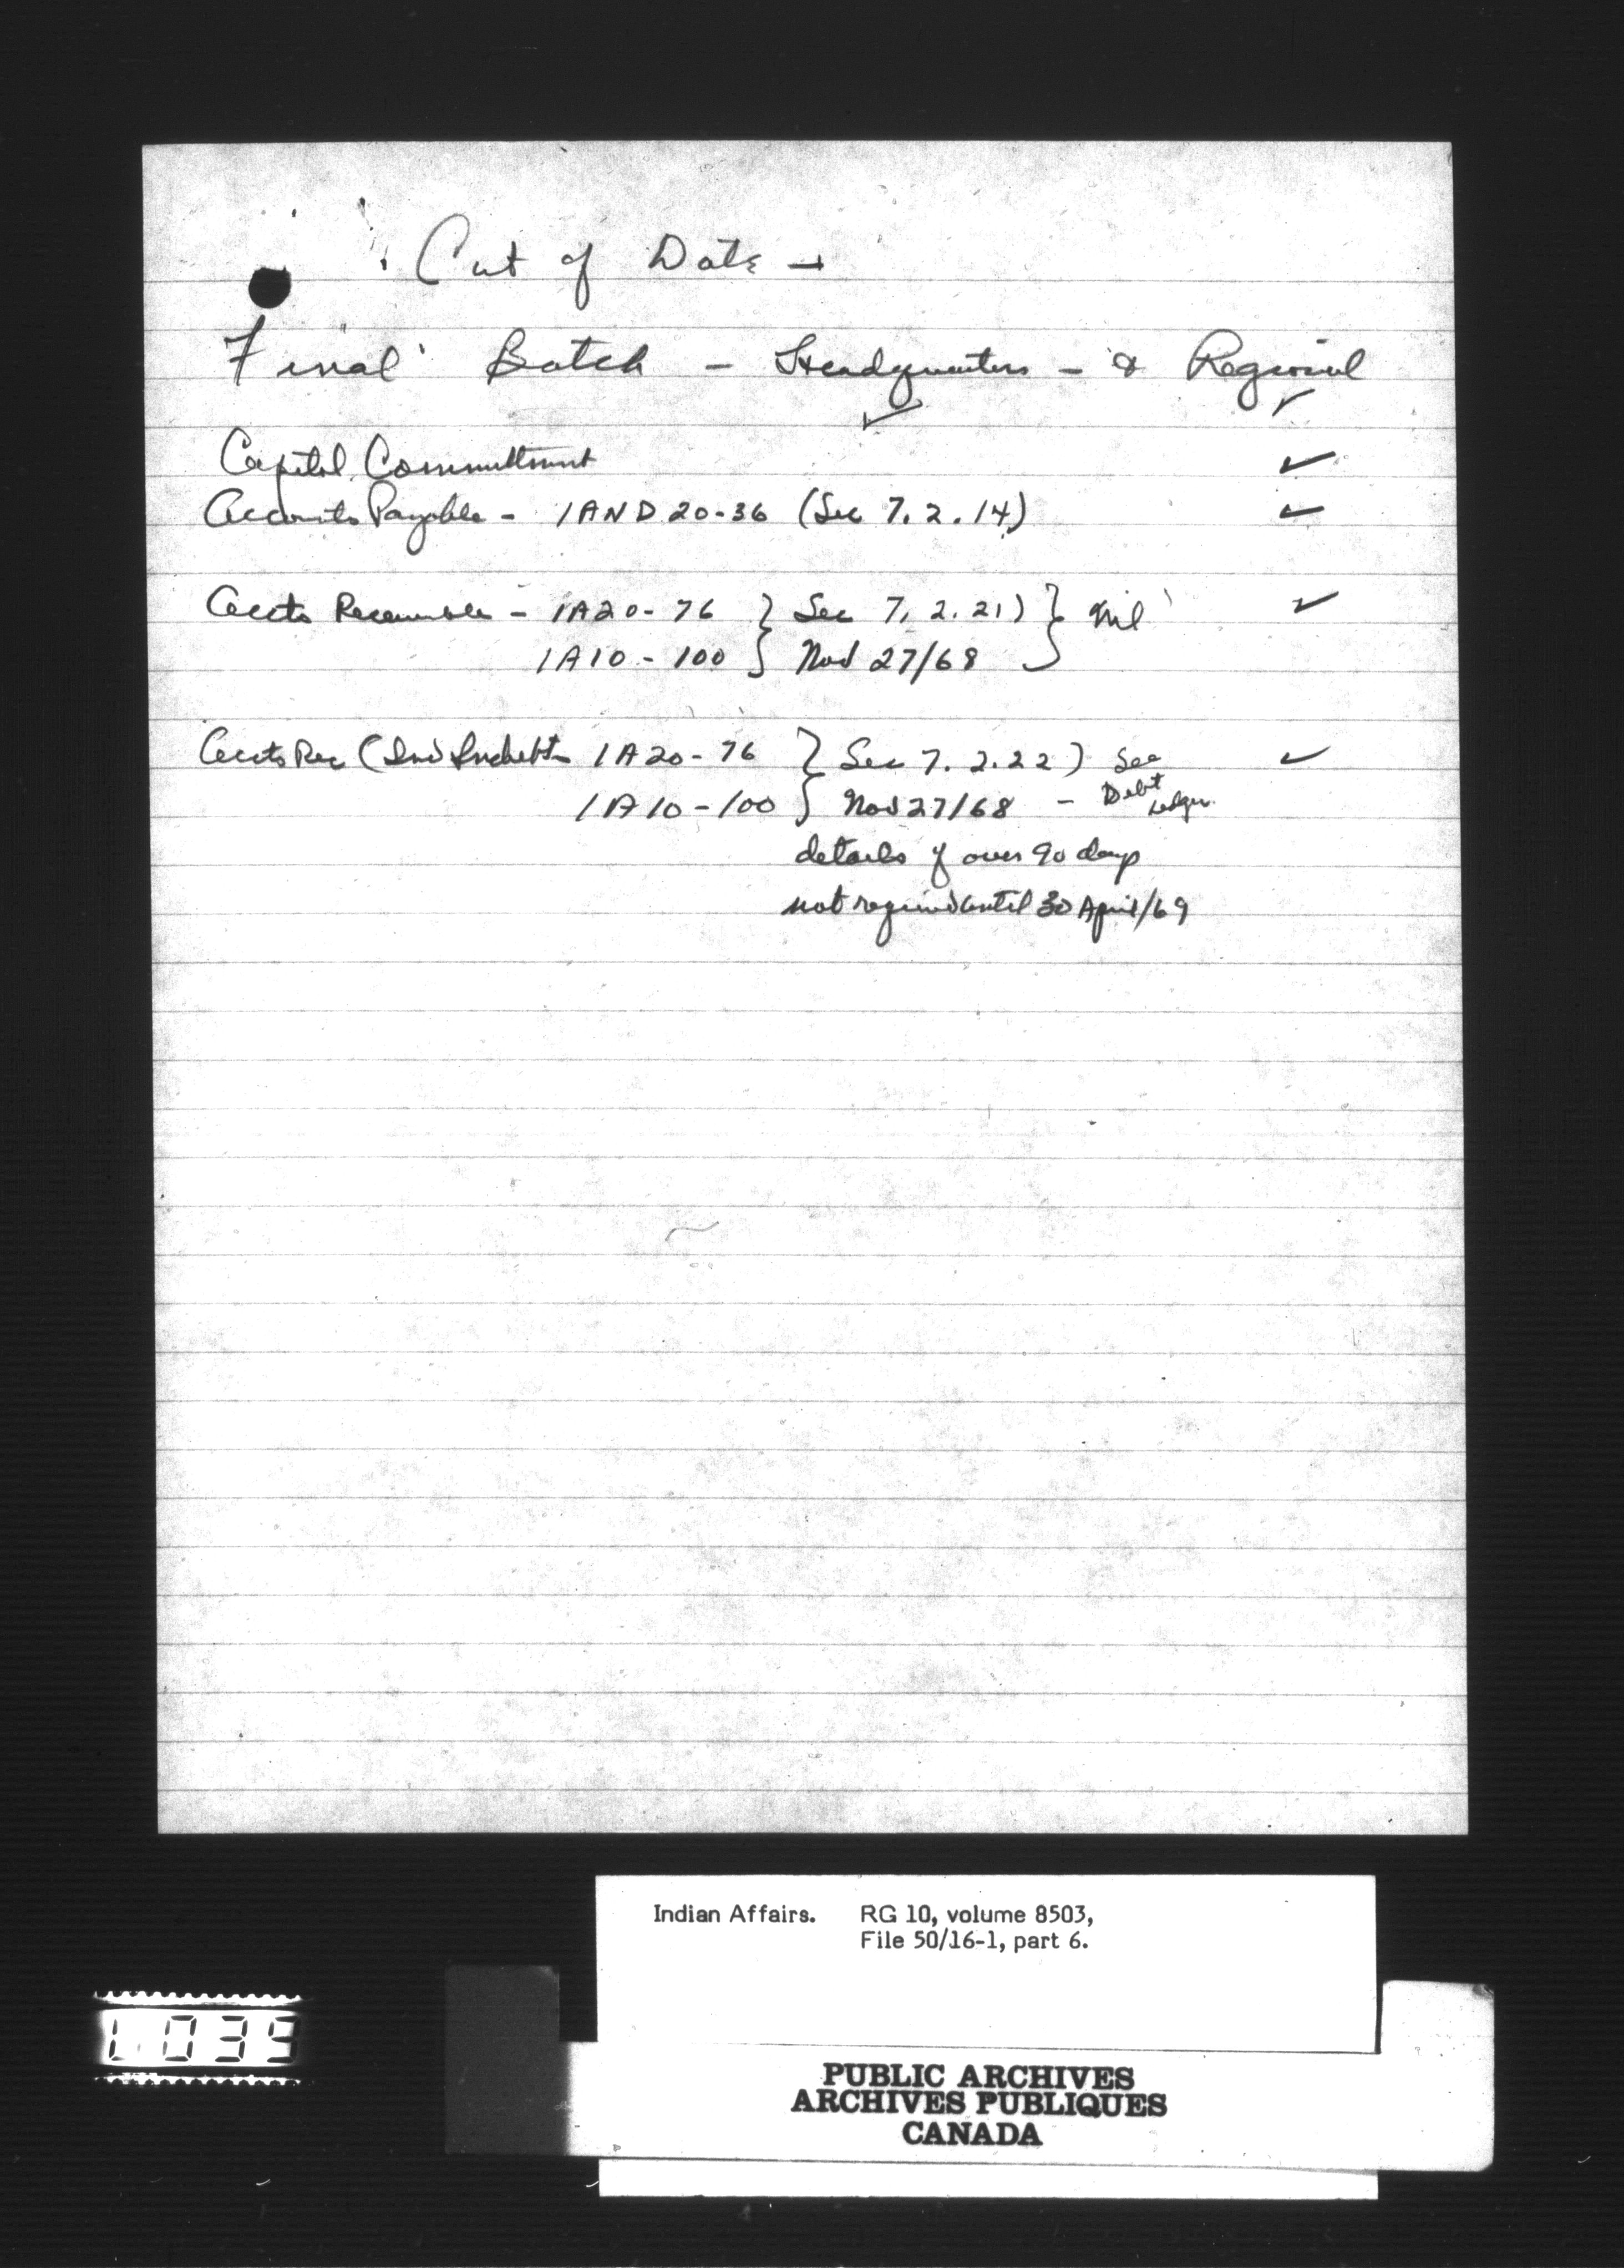 Cut of Date -
Final Batch - Headquarters - & Regional
✓ ✓
Capital Committment ✓
Accounts Payable - IAND 20-36 (Sec 7.2.14) ✓
Accts Receivable - IA20-76 } Sec 7.2.21) } Nil ✓
IA10-100 } Nov 27/68
Accts Rec (Ind Indebt - IA20-76 } Sec 7.2.22) See ✓
IA10-100 } Nov 27/68 - Debt Ledger.
details of over 90 days
not required until 30 April/69
Indian Affairs. RG 10, volume 8503,
File 50/16-1, part 6.
PUBLIC ARCHIVES
ARCHIVES PUBLIQUES
CANADA